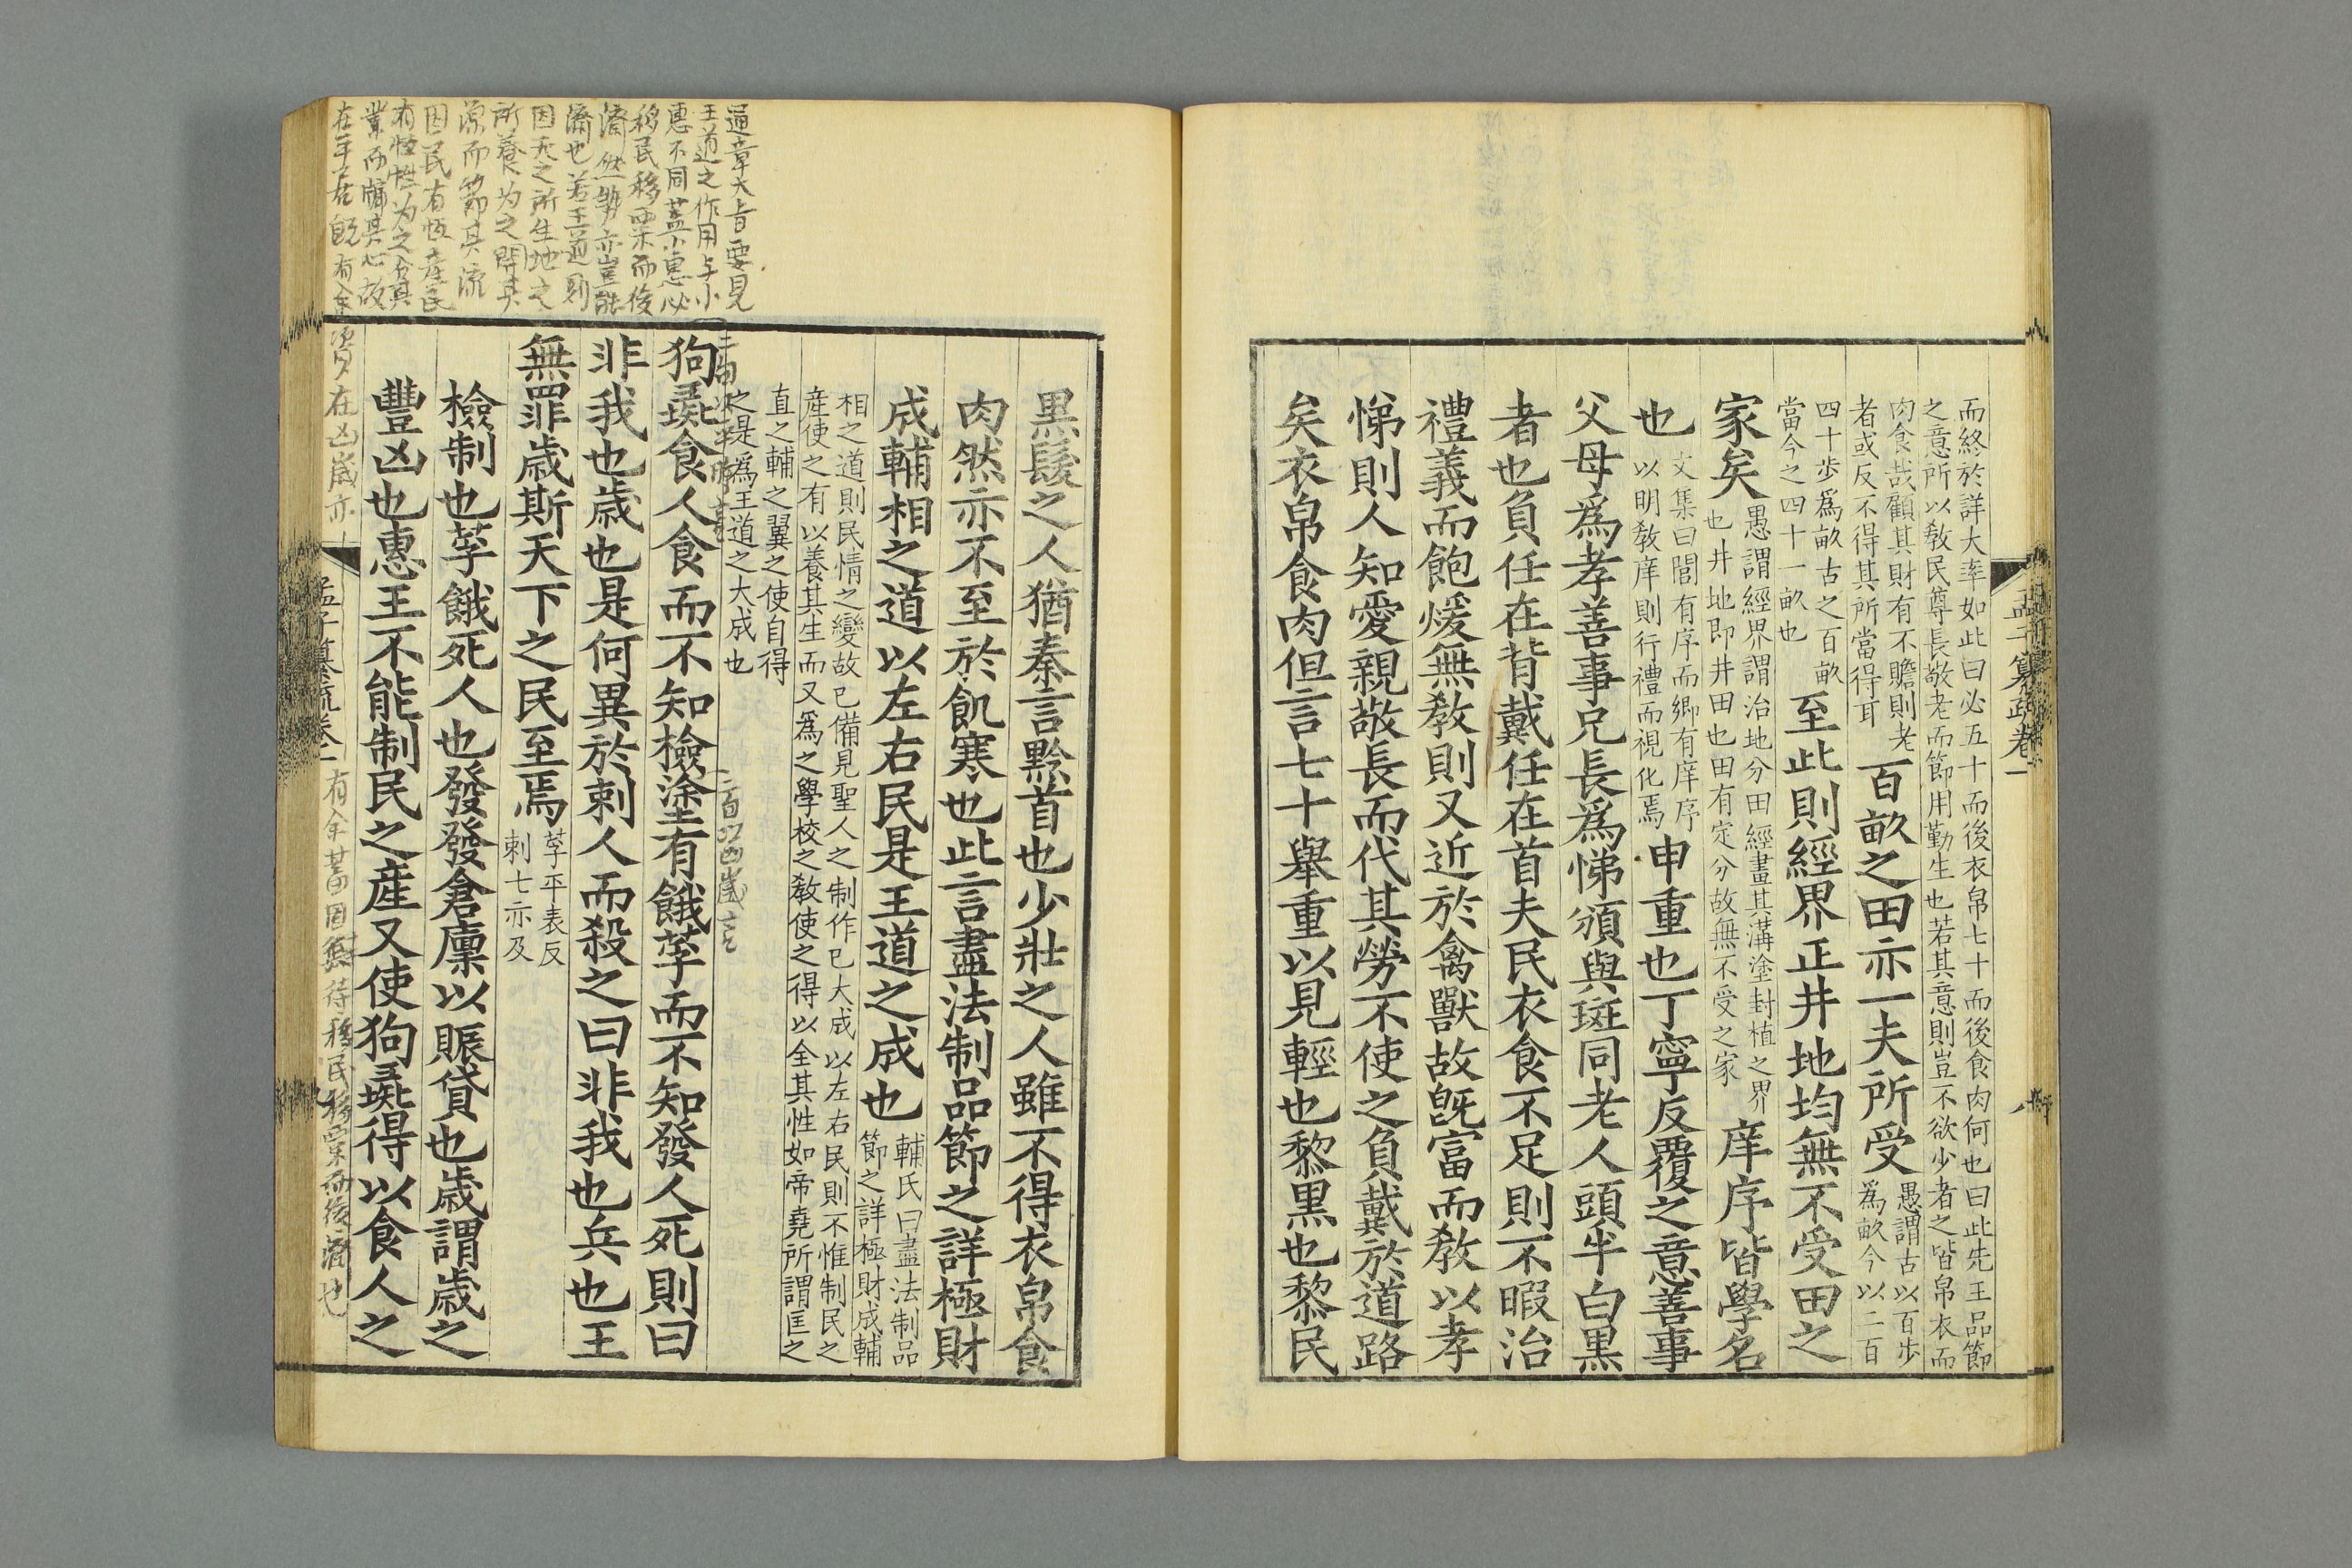 而終於詳大率如此曰必五十而後衣帛七十而後食肉何也曰此先王品節
之意所以教民尊長敬老而節用勤生也若其意則豈不欲少者之皆帛衣而
肉食哉顧其財有不贍則老
者或反不得其所當得耳
百畝之田亦一夫所受
愚謂古以百步
爲畝今以二百
四十步爲畝古之百畝
當今之四十一畝也
至此則經界正井地均無不受田之
家矣
愚謂經界謂治地分田經畫其溝塗封植之界
也井地即井田也田有定分故無不受之家
庠序皆學名
也
文集曰閭有序而鄉有庠序
以明教庠則行禮而視化焉
申重也丁寧反覆之意善事
父母爲孝善事兄長爲悌頒與斑同老人頭半白黑
者也負任在背戴任在首夫民衣食不足則不暇治
禮義而飽煖無教則又近於禽獸故旣富而教以孝
悌則人知愛親敬長而代其勞不使之負戴於道路
矣衣帛食肉但言七十舉重以見輕也黎黑也黎民
孟子纂疏卷一
八
黑髮之人猶秦言黔首也少壯之人雖不得衣帛食
肉然亦不至於飢寒也此言盡法制品節之詳極財
成輔相之道以左右民是王道之成也
輔氏曰盡法制品
節之詳極財成輔
相之道則民情之變故已備見聖人之制作已大成以左右民則不惟制民之
產使之有以養其生而又爲之學校之敎使之得以全其性如帝堯所謂匡之
直之輔之翼之使自得
之是爲王道之大成也
狗彘食人食而不知檢塗有餓莩而不知發人死則曰
非我也歲也是何異於刺人而殺之曰非我也兵也王
無罪歲斯天下之民至焉
莩平表反
刺七亦反
檢制也莩餓死人也發發倉廩以賑貸也歲謂歲之
豐凶也惠王不能制民之產又使狗彘得以食人之
孟子纂疏卷一
通章大旨要見
王道之作用与小
惠不同蓋小惠必
移民移粟而後
濟然勢亦豈能
濟也若王道則
因天之所生地之
所養为之開其
源而節其流
因民有恆產民
有恆性为之
業而牖其心故
在平居既有余
資在凶嵗亦
有余蓄固無待移民移粟而後濟也
二句以凶嵗言